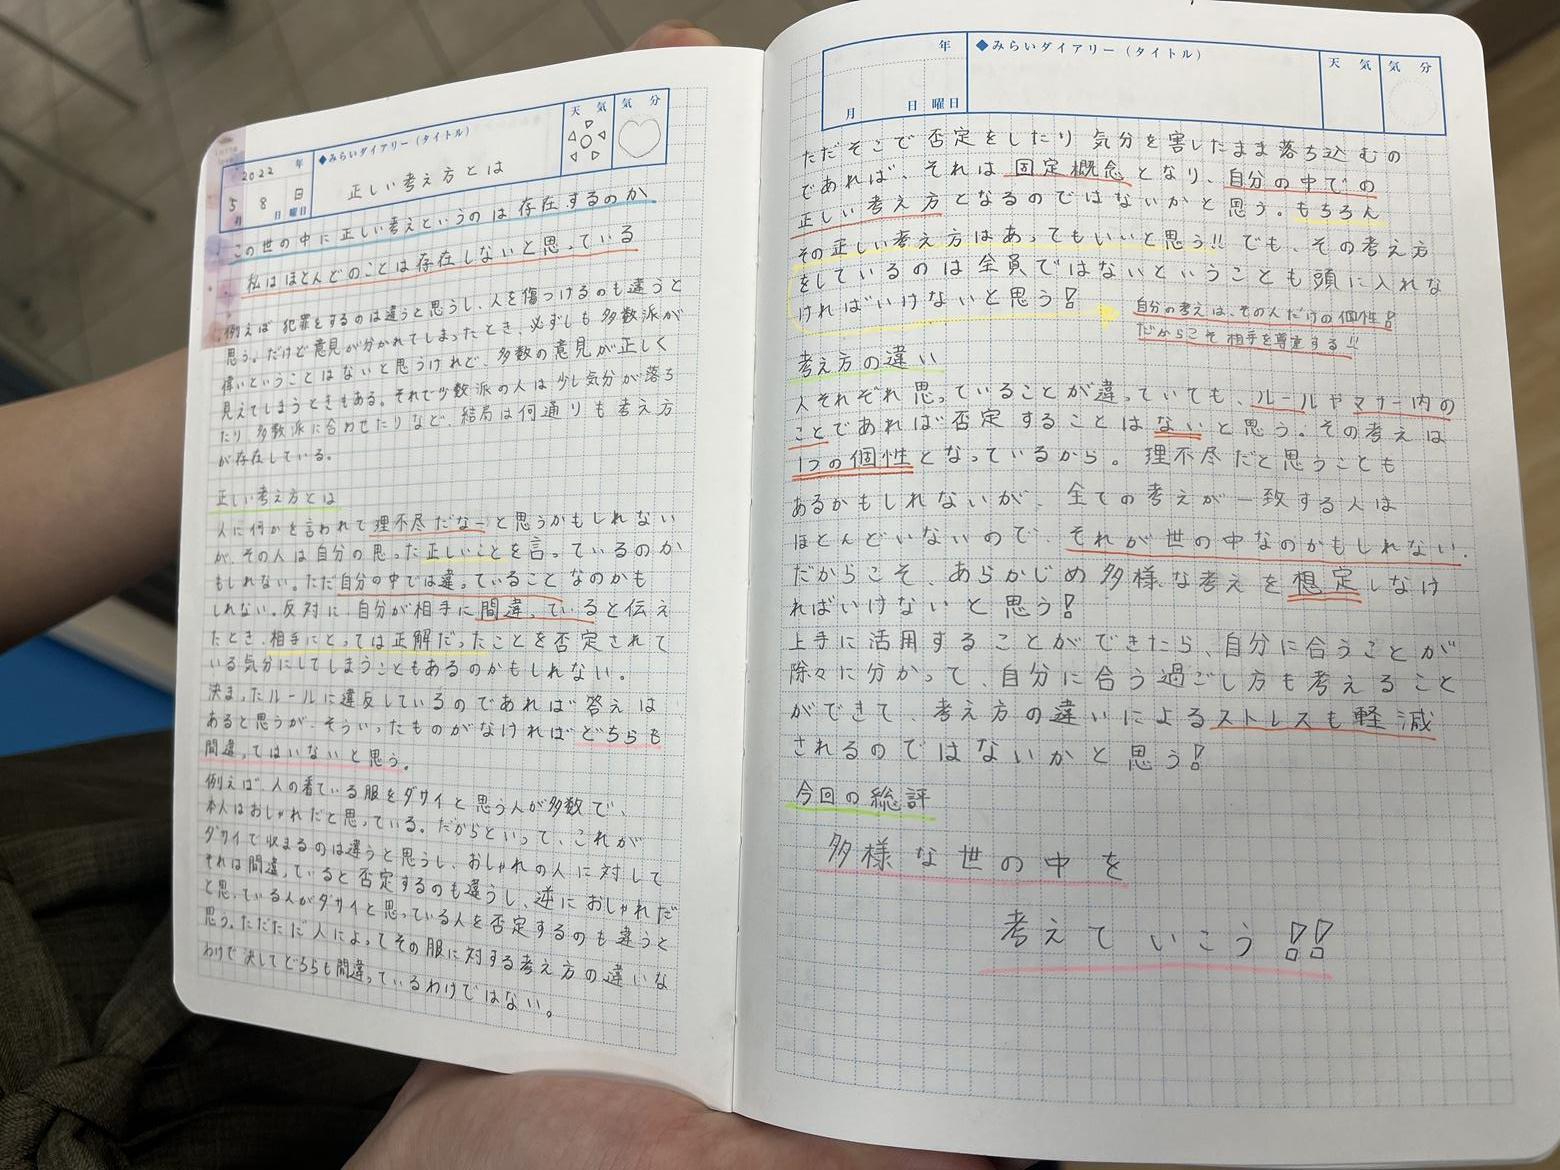 2022 年
5 月 8 日 日 曜日
◆みらいダイアリー（タイトル）
正しい考え方とは
天 気
気 分
この世の中に正しい考えというのは存在するのか
私はほとんどのことは存在しないと思っている
例えば 犯罪をするのは違うと思うし、人を傷つけるのも違うと
思う。だけど意見が分かれてしまったとき、必ずしも多数派が
偉いということはないと思うけれど、多数の意見が正しく
見えてしまうときもある。それで少数派の人は少し気分が落ち
たり 多数派に合わせたりなど、結局は何通りも考え方
が存在している。
正しい考え方とは
人に何かを言われて理不尽だなーと思うかもしれない
が、その人は自分の思った正しいことを言っているのか
もしれない。ただ自分の中では違っていることなのかも
しれない。反対に 自分が相手に間違っていると伝え
たとき、相手にとっては正解だったことを否定されて
いる気分にしてしまうこともあるのかもしれない。
決まったルールに違反しているのであれば答えは
あると思うが、そういったものがなければどちらも
間違ってはいないと思う。
例えば 人の着ている服をダサイと思う人が多数で、
本人はおしゃれだと思っている。だからといって、これが
ダサイで収まるのは違うと思うし、おしゃれの人に対して
それは間違っていると否定するのも違うし、逆におしゃれだ
と思っている人がダサイと思っている人を否定するのも違うと
思う。ただただ人によってその服に対する考え方の違いな
わけで決してどちらも間違っているわけではない。
年
月 日 曜日
◆みらいダイアリー（タイトル）
天 気
気 分
ただそこで否定をしたり気分を害したまま落ち込むの
であれば、それは固定概念となり、自分の中での
正しい考え方となるのではないかと思う。もちろん
その正しい考え方はあってもいいと思う!! でも、その考え方
をしているのは全員ではないということも頭に入れな
ければいけないと思う!
自分の考えは、その人だけの個性!
だからこそ相手を尊重する!!
考え方の違い
人それぞれ思っていることが違っていても、ルールやマナー内の
ことであれば否定することはないと思う。その考えは
1つの個性となっているから。理不尽だと思うことも
あるかもしれないが、全ての考えが一致する人は
ほとんどいないので、それが世の中なのかもしれない.
だからこそ、あらかじめ多様な考えを想定しなけ
ればいけないと思う!
上手に活用することができたら、自分に合うことが
除々に分かって、自分に合う過ごし方も考えること
ができて、考え方の違いによるストレスも軽減
されるのではないかと思う!
今回の総評
多様な世の中を
考えていこう!!